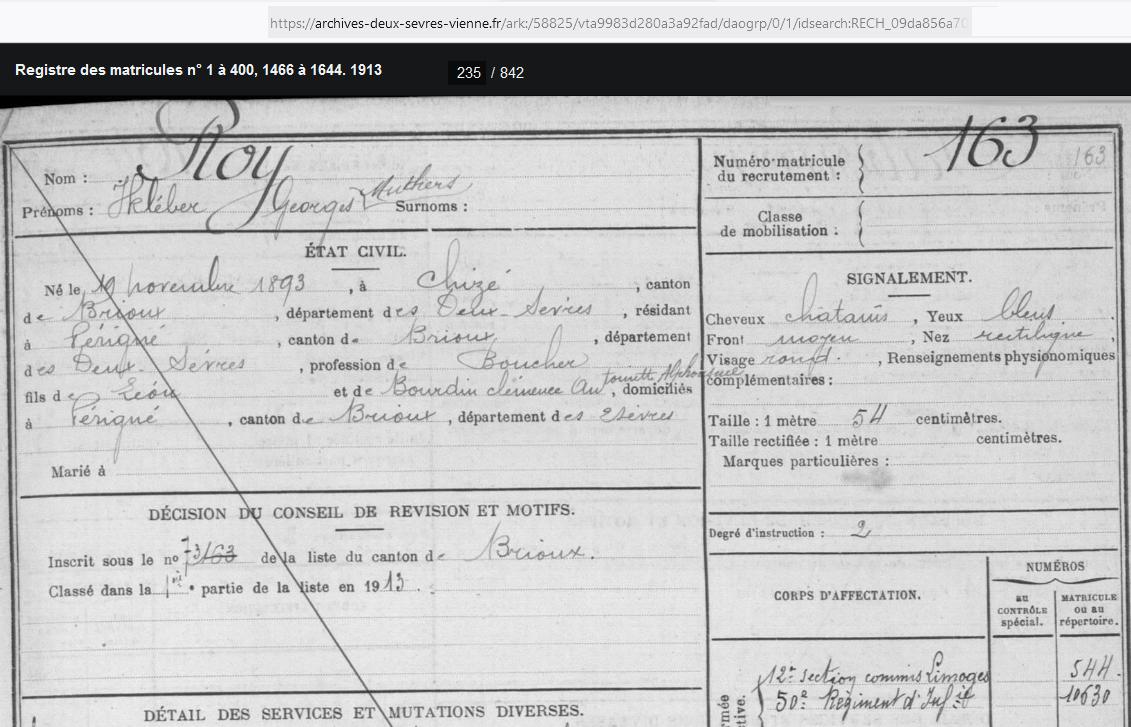 https://archives-deux-sevres-vienne.fr/ark:/58825/vta9983d280a3a92fad/daogrp/0/1/idsearch:RECH_09da856a70
Registre des matricules n° 1 à 400, 1466 à 1644. 1913 235 / 842
Nom : Roy
Prénoms : Kléber Georges Surnoms :
ÉTAT CIVIL.
Né le 19 novembre 1893, à Chizé, canton
de Brioux, département des Deux-Sèvres, résidant
à Périgné, canton de Brioux, département
des Deux-Sèvres, profession de Boucher
fils de Léon et de Bourdin clémence Antoinette Alphonsine, domiciliés
à Périgné, canton de Brioux, département des 2 Sèvres
Marié à
DÉCISION DU CONSEIL DE REVISION ET MOTIFS.
Inscrit sous le no 73 163 de la liste du canton de Brioux.
Classé dans la 1re partie de la liste en 1913.
DÉTAIL DES SERVICES ET MUTATIONS DIVERSES.
Numéro matricule
du recrutement : 163 163
Classe
de mobilisation :
SIGNALEMENT.
Cheveux châtains, Yeux bleus.
Front moyen, Nez rectiligne
Visage rond., Renseignements physionomiques
complémentaires :
Taille : 1 mètre 54 centimètres.
Taille rectifiée : 1 mètre centimètres.
Marques particulières :
Degré d'instruction : 2
CORPS D'AFFECTATION.
NUMÉROS
au
CONTRÔLE
spécial.
MATRICULE
ou au
répertoire.
12e Section commis Limoges 544.
50e Régiment d'Inf ie 10630